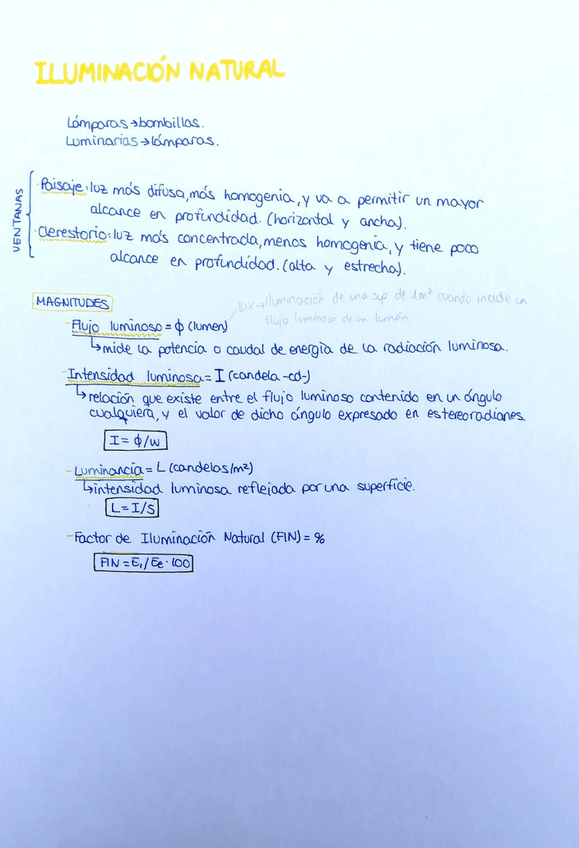 ILUMINACIÓN NATURAL
Lámparas→bombillas.
Luminarias→lámparas.
VENTANAS
-Paisaje: luz más difusa, más homogenia, y va a permitir un mayor
alcance en profundidad. (horizontal y ancha).
-Clerestorio: luz más concentrada, menos homogenia, y tiene poco
alcance en profundidad. (alta y estrecha).
MAGNITUDES
lux→iluminación de una sup de 1m² cuando incide un
flujo luminoso de un lumen.
-Flujo luminoso = ϕ (lumen)
↳mide la potencia o caudal de energía de la radiación luminosa.
-Intensidad luminosa = I (candela -cd-)
↳relación que existe entre el flujo luminoso contenido en un ángulo
cualquiera, y el valor de dicho ángulo expresado en estereoradianes.
I = ϕ/w
-Luminancia = L (candelas/m²)
↳intensidad luminosa reflejada por una superficie.
L = I/S
-Factor de Iluminación Natural (FIN) = %
FIN = Ei/Ee·100